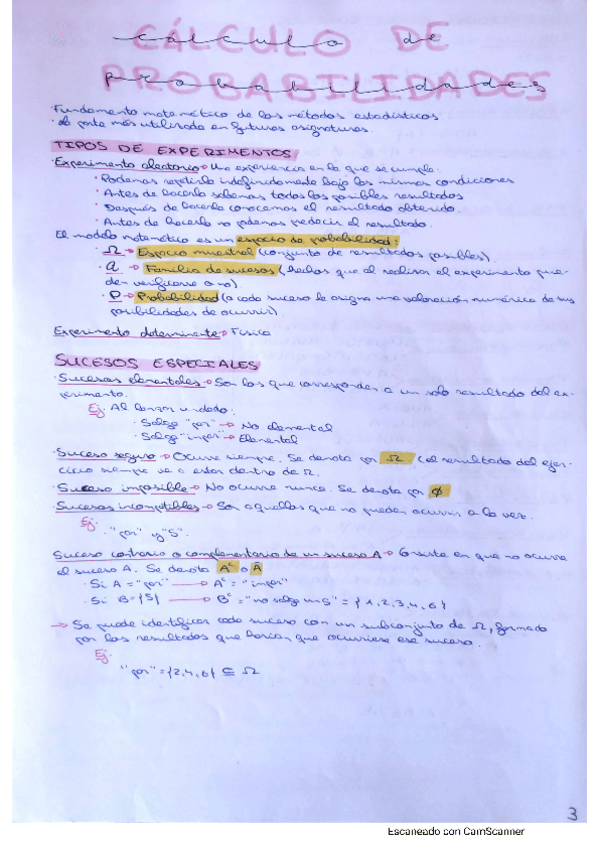 CÁLCULO DE
cálculo de
PROBABILIDADES
probabilidades
Fundamento matemático de los métodos estadísticos.
· La parte más utilizada en futuras asignaturas.
TIPOS DE EXPERIMENTOS
· Experimento aleatorio → Una experiencia en la que se cumple:
· Podemos repetirlo indefinidamente bajo las mismas condiciones
· Antes de hacerlo sabemos todos los posibles resultados
· Después de hacerlo conocemos el resultado obtenido.
· Antes de hacerlo no podemos predecir el resultado.
El modelo matemático es un espacio de probabilidad:
· Ω → Espacio muestral (conjunto de resultados posibles).
· a → Familia de sucesos (hechos que al realizar el experimento pue-
den verificarse o no).
· P → Probabilidad (a cada suceso le asigna una valoración numérica de sus
posibilidades de ocurrir).
Experimento determinante → Física
SUCESOS ESPECIALES
· Sucesos elementales → Son los que corresponden a un solo resultado del ex-
perimento.
Ej: Al lanzar un dado:
· Salga "par" → No elemental
· Salga "impar" → Elemental
· Suceso seguro → Ocurre siempre. Se denota por Ω (el resultado del ejer-
cicio siempre va a estar dentro de Ω.
· Suceso imposible → No ocurre nunca. Se denota por ∅
· Sucesos incompatibles → Son aquellos que no pueden ocurrir a la vez.
Ej:
· "par" y "5".
Suceso contrario o complementario de un suceso A → Consiste en que no ocurre
el suceso A. Se denota Aᶜ o Ā
· Si A = "par" → Aᶜ = "impar"
· Si B = {5} → Bᶜ = "no salga un 5" = {1,2,3,4,6}
→ Se puede identificar cada suceso con un subconjunto de Ω, formado
por los resultados que harían que ocurriese ese suceso.
Ej:
"par" = {2,4,6} ⊆ Ω
3
Escaneado con CamScanner